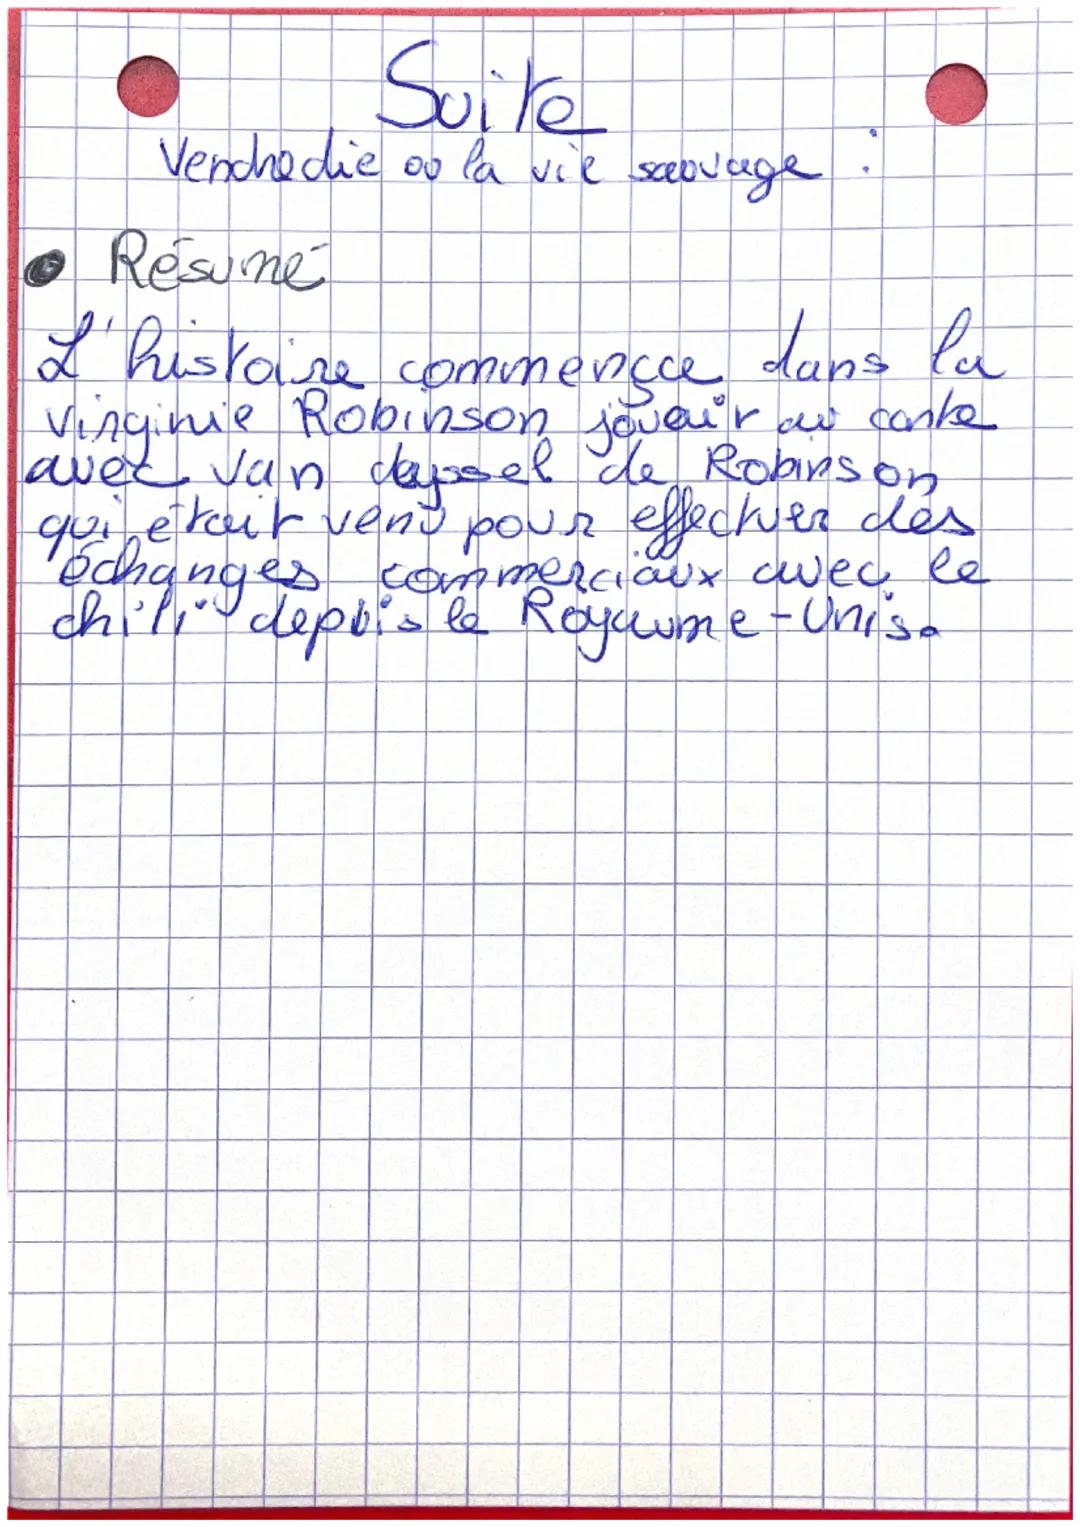 Suite
Vendredie ou la vie sauvage :
• Résumé
L'histoire commençce dans la
virginie Robinson jouait au carte
avec Van deyssel de Robinson
qui était venu pour effectuer des
échanges commerciaux avec le
chili depuis le Royaume-Unis.